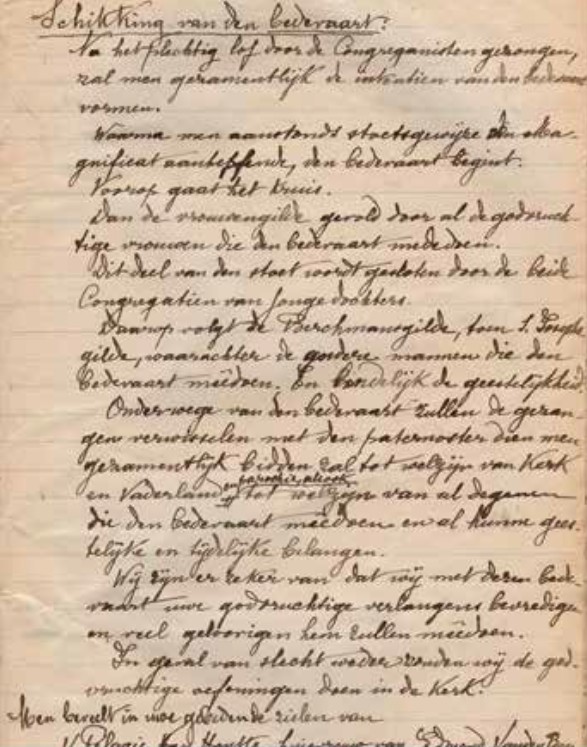 Schikking van den bedevaart:
Na het plechtig lof door de Congreganisten gezongen,
zal men gezamentlijk de intentien van den bedevaart
vormen.
Waarna men aanstonds stoetsgewijze den Ma-
gnificat aanheffende, den bedevaart begint.
Voorop gaat het Kruis.
Dan de vrouwengilde gevold door al de godvruch
tige vrouwen die den bedevaart mededoen.
Dit deel van den stoet wordt gesloten door de beide
Congregatien van Jonge dochters.
Daarop volgt de Berchmansgilde, toen S. Josephs
gilde, waarachter de andere mannen die den
bedevaart meêdoen. En eindelijk de geestelijkheid
Onderwege van den bedevaart zullen de gezan
gen verwisselen met den paternoster dien men
gezamentlijk bidden zal tot welzijn van Kerk
en Vaderland, en parochie, alsook
tot welzijn van al degenen
die den bedevaart meêdoen en al hunne gees-
telijke en tijdelijke belangen.
Wij zijn er zeker van dat wij met dezen bede
vaart uwe godvruchtige verlangens bevredigen
en veel geloovigen hem zullen meêdoen.
In geval van slecht weder zouden wij de god
vruchtige oefeningen doen in de Kerk.
Men beveelt in uwe gebeden de zielen van
Pelagie Van